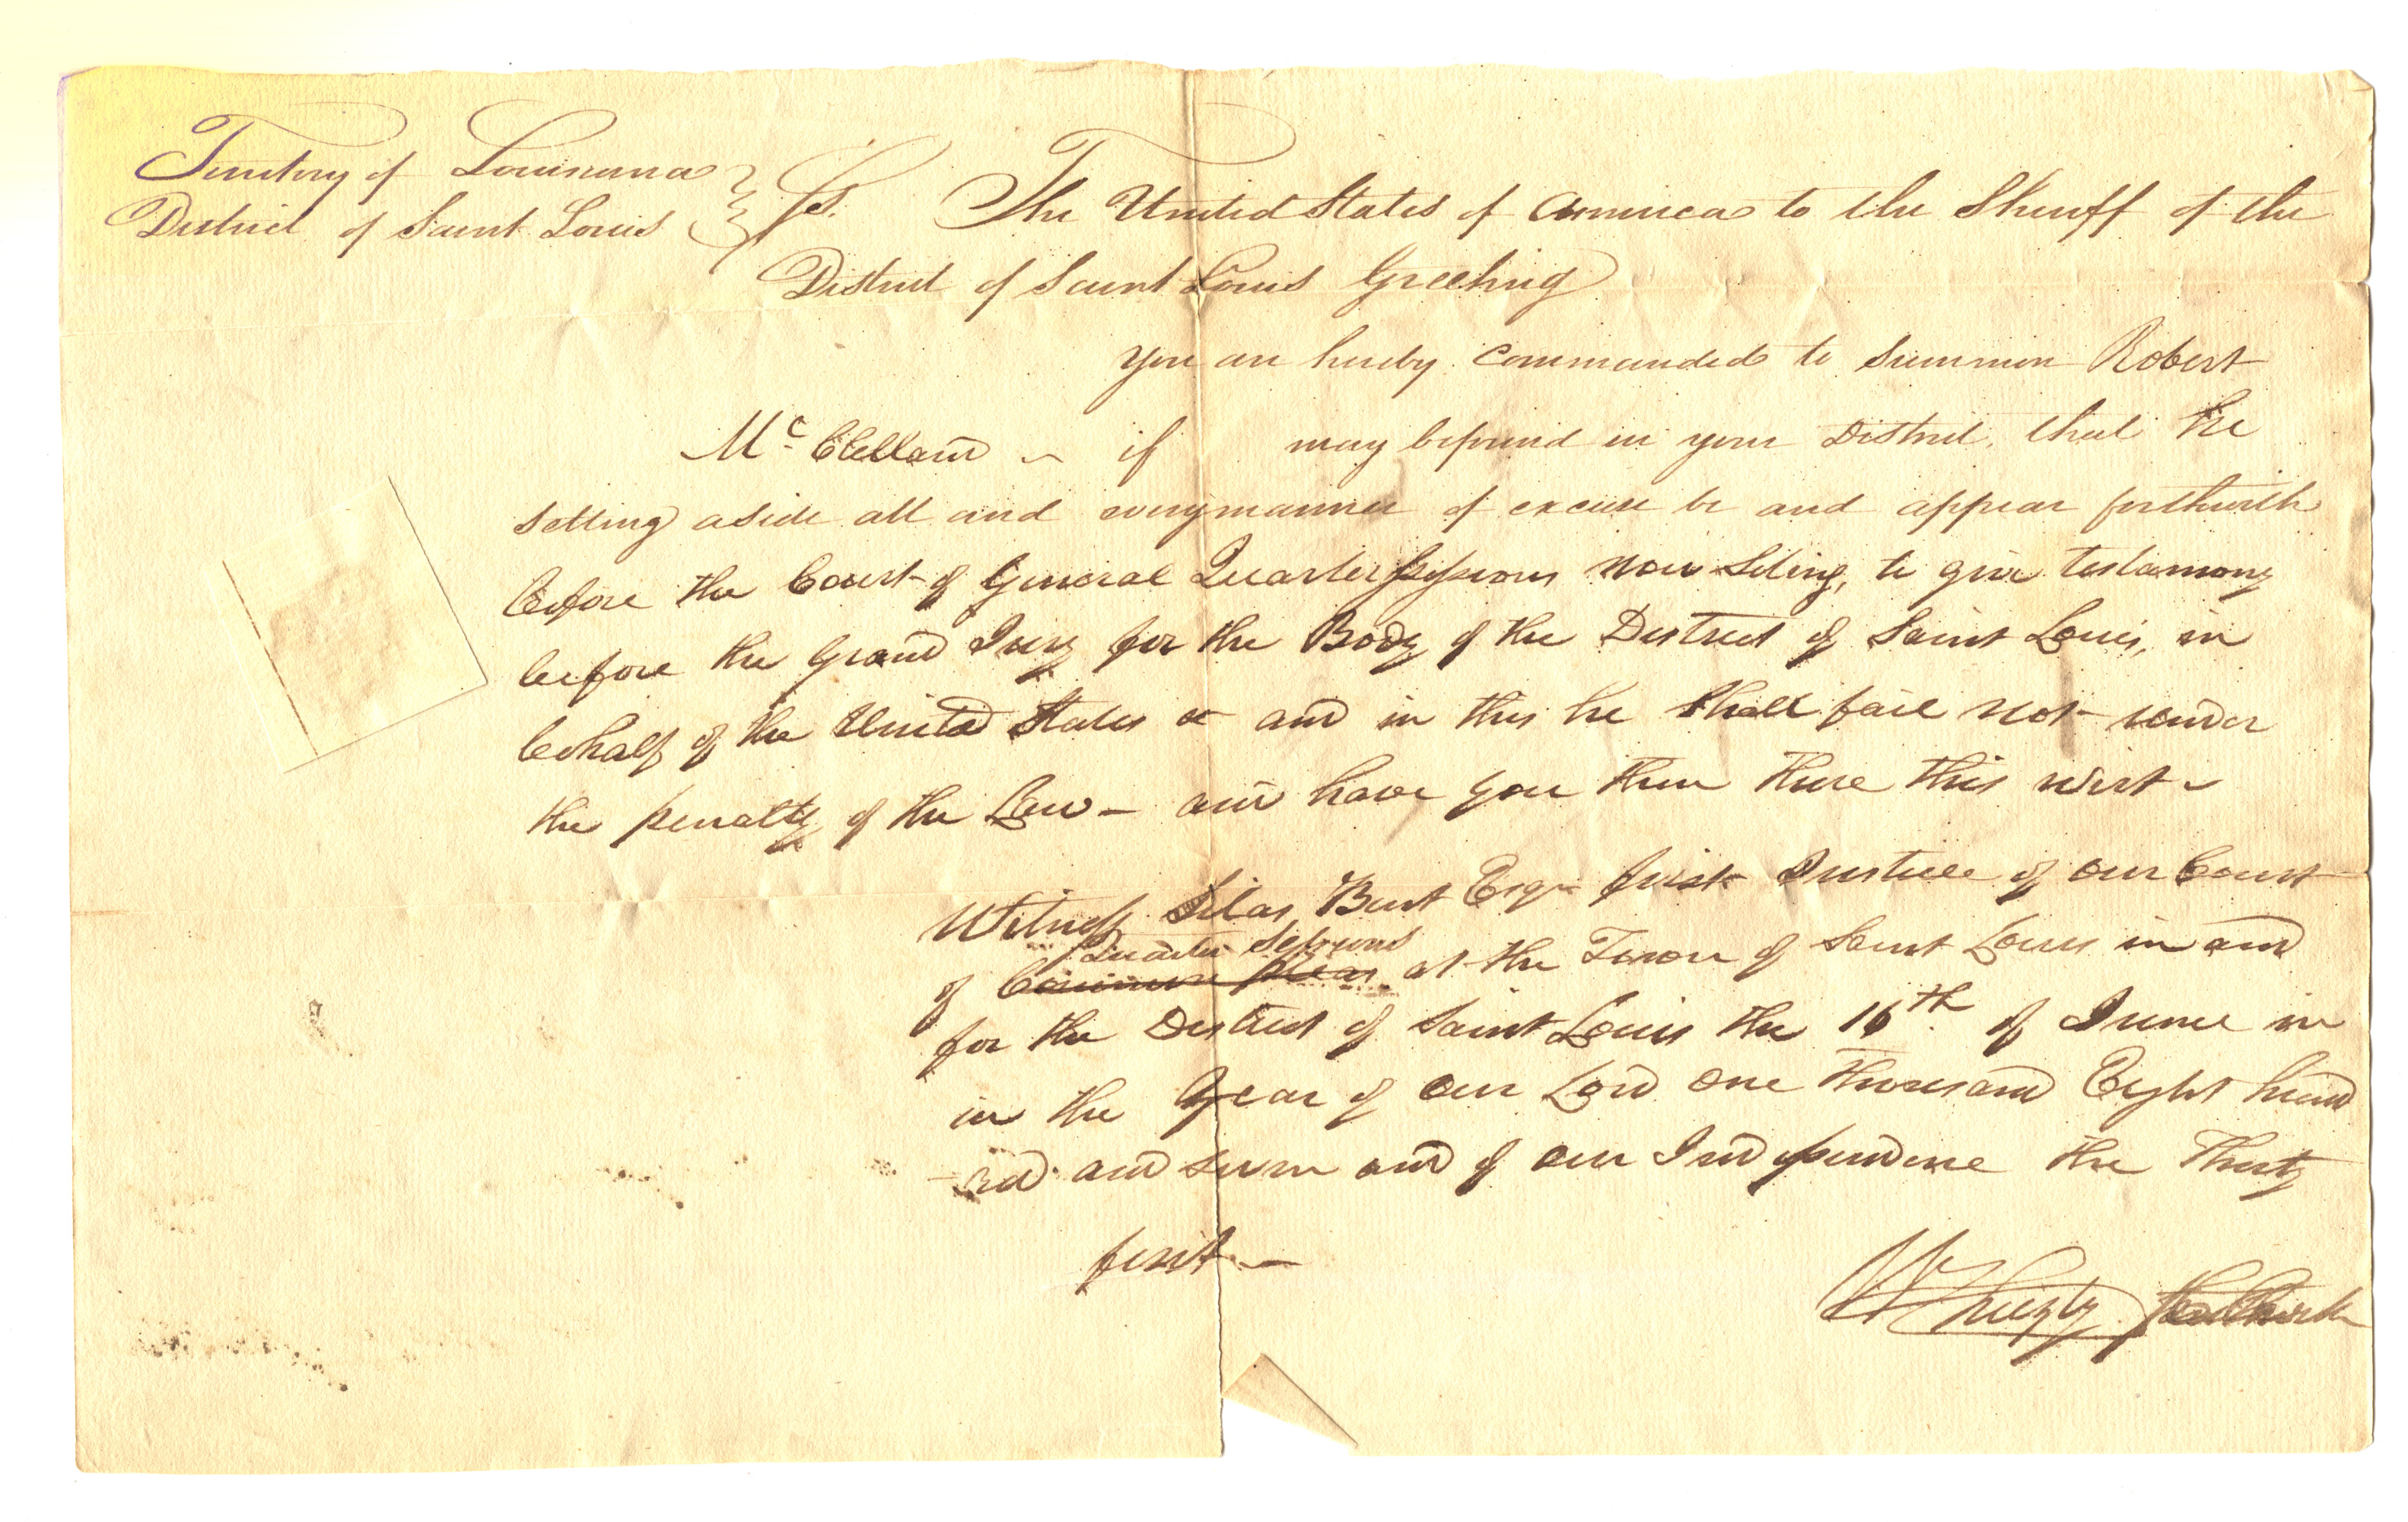 Territory of Louisiana
District of Saint Louis } Ss. The United States of America to the Sheriff of the
District of Saint Louis Greeting
You are hereby Commanded to Summon Robert
Mc Clelland ~ if may be found in your District, that he
setting aside all and every manner of excuse be and appear forthwith
before the Court of General Quarter Sessions now Siting, to give testamony
before the Grand Jury for the Body of the District of Saint Louis, in
behalf of the United States and in this he shall fail not under
the penalty of the Law - and have you then there this writ ~
Witness Silas Bent Esqr first Justice of our Court
Quarter Sessions
of Common pleas at the Town of Saint Louis in and
for the District of Saint Louis the 16th of June in
in the Year of our Lord One Thousand Eight hund
-red and seven and of our Independence the Thirty
first -